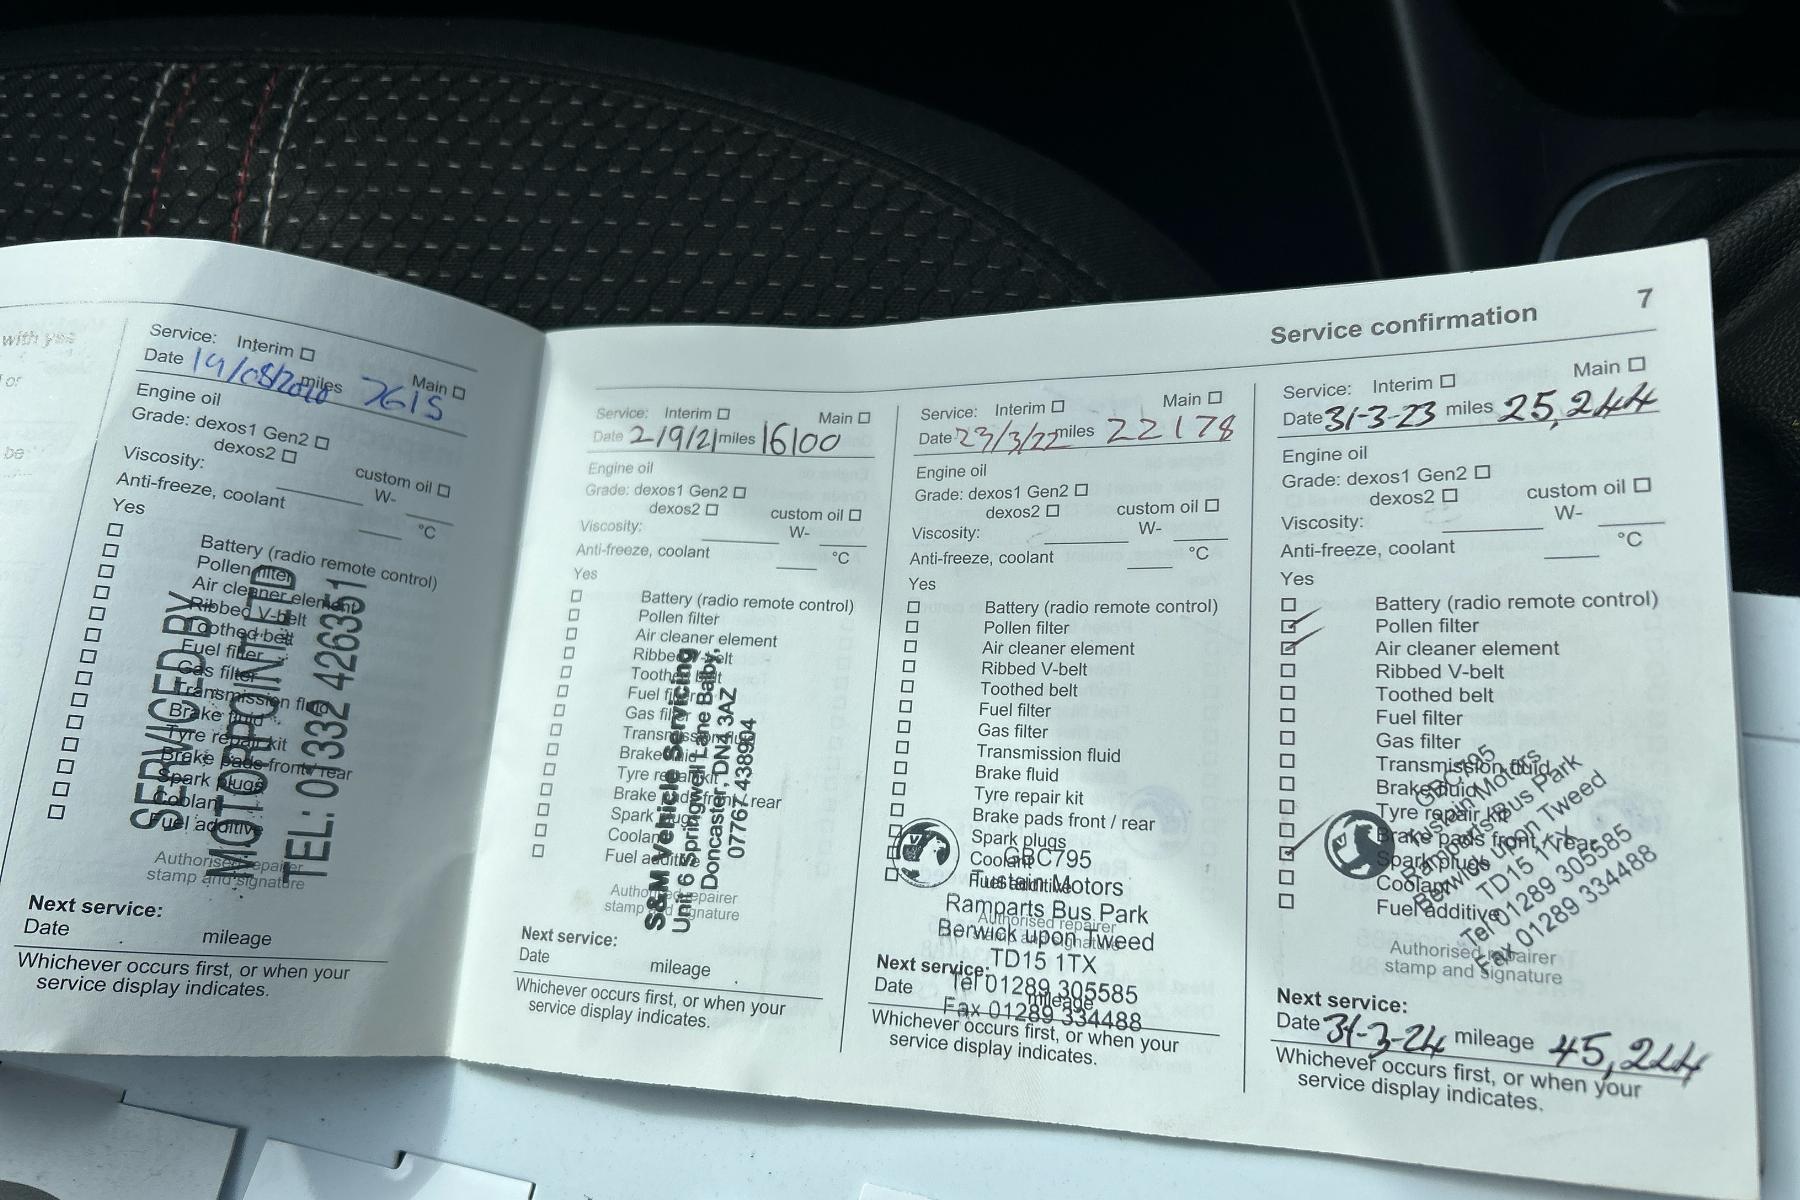 with yes
or
be
Service: Interim Main
Date 19/08/2020 miles 7615
Engine oil
Grade: dexos1 Gen2
dexos2 custom oil
Viscosity: W-
Anti-freeze, coolant °C
Yes
Battery (radio remote control)
Pollen filter
Air cleaner element
Ribbed V-belt
Toothed belt
Fuel filter
Gas filter
Transmission fluid
Brake fluid
Tyre repair kit
Brake pads front / rear
Spark plugs
Coolant
Fuel additive
SERVICED BY
MOTORPOINT LTD
TEL: 01332 426351
Authorised repairer
stamp and signature
Next service:
Date mileage
Whichever occurs first, or when your
service display indicates.
Service confirmation 7
Service: Interim Main
Date 2/9/21 miles 16100
Engine oil
Grade: dexos1 Gen2
dexos2 custom oil
Viscosity: W-
Anti-freeze, coolant °C
Yes
Battery (radio remote control)
Pollen filter
Air cleaner element
Ribbed V-belt
Toothed belt
Fuel filter
Gas filter
Transmission fluid
Brake fluid
Tyre repair kit
Brake pads front / rear
Spark plugs
Coolant
Fuel additive
S&M Vehicle Servicing
Unit 6 Springwell Lane Balby,
Doncaster, DN4 3AZ
07767 438904
Authorised repairer
stamp and signature
Next service:
Date mileage
Whichever occurs first, or when your
service display indicates.
Service: Interim Main
Date 23/3/22 miles 22178
Engine oil
Grade: dexos1 Gen2
dexos2 custom oil
Viscosity: W-
Anti-freeze, coolant °C
Yes
Battery (radio remote control)
Pollen filter
Air cleaner element
Ribbed V-belt
Toothed belt
Fuel filter
Gas filter
Transmission fluid
Brake fluid
Tyre repair kit
Brake pads front / rear
Spark plugs
Coolant
Fuel additive
GBC795
Tustain Motors
Ramparts Bus Park
Berwick upon Tweed
TD15 1TX
Tel 01289 305585
Fax 01289 334488
Authorised repairer
stamp and signature
Next service:
Date mileage
Whichever occurs first, or when your
service display indicates.
Service: Interim Main
Date 31-3-23 miles 25,244
Engine oil
Grade: dexos1 Gen2
dexos2 custom oil
Viscosity: W-
Anti-freeze, coolant °C
Yes
Battery (radio remote control)
Pollen filter
Air cleaner element
Ribbed V-belt
Toothed belt
Fuel filter
Gas filter
Transmission fluid
Brake fluid
Tyre repair kit
Brake pads front / rear
Spark plugs
Coolant
Fuel additive
GBC795
Tustain Motors
Ramparts Bus Park
Berwick upon Tweed
TD15 1TX
Tel 01289 305585
Fax 01289 334488
Authorised repairer
stamp and signature
Next service:
Date 31-3-24 mileage 45,244
Whichever occurs first, or when your
service display indicates.